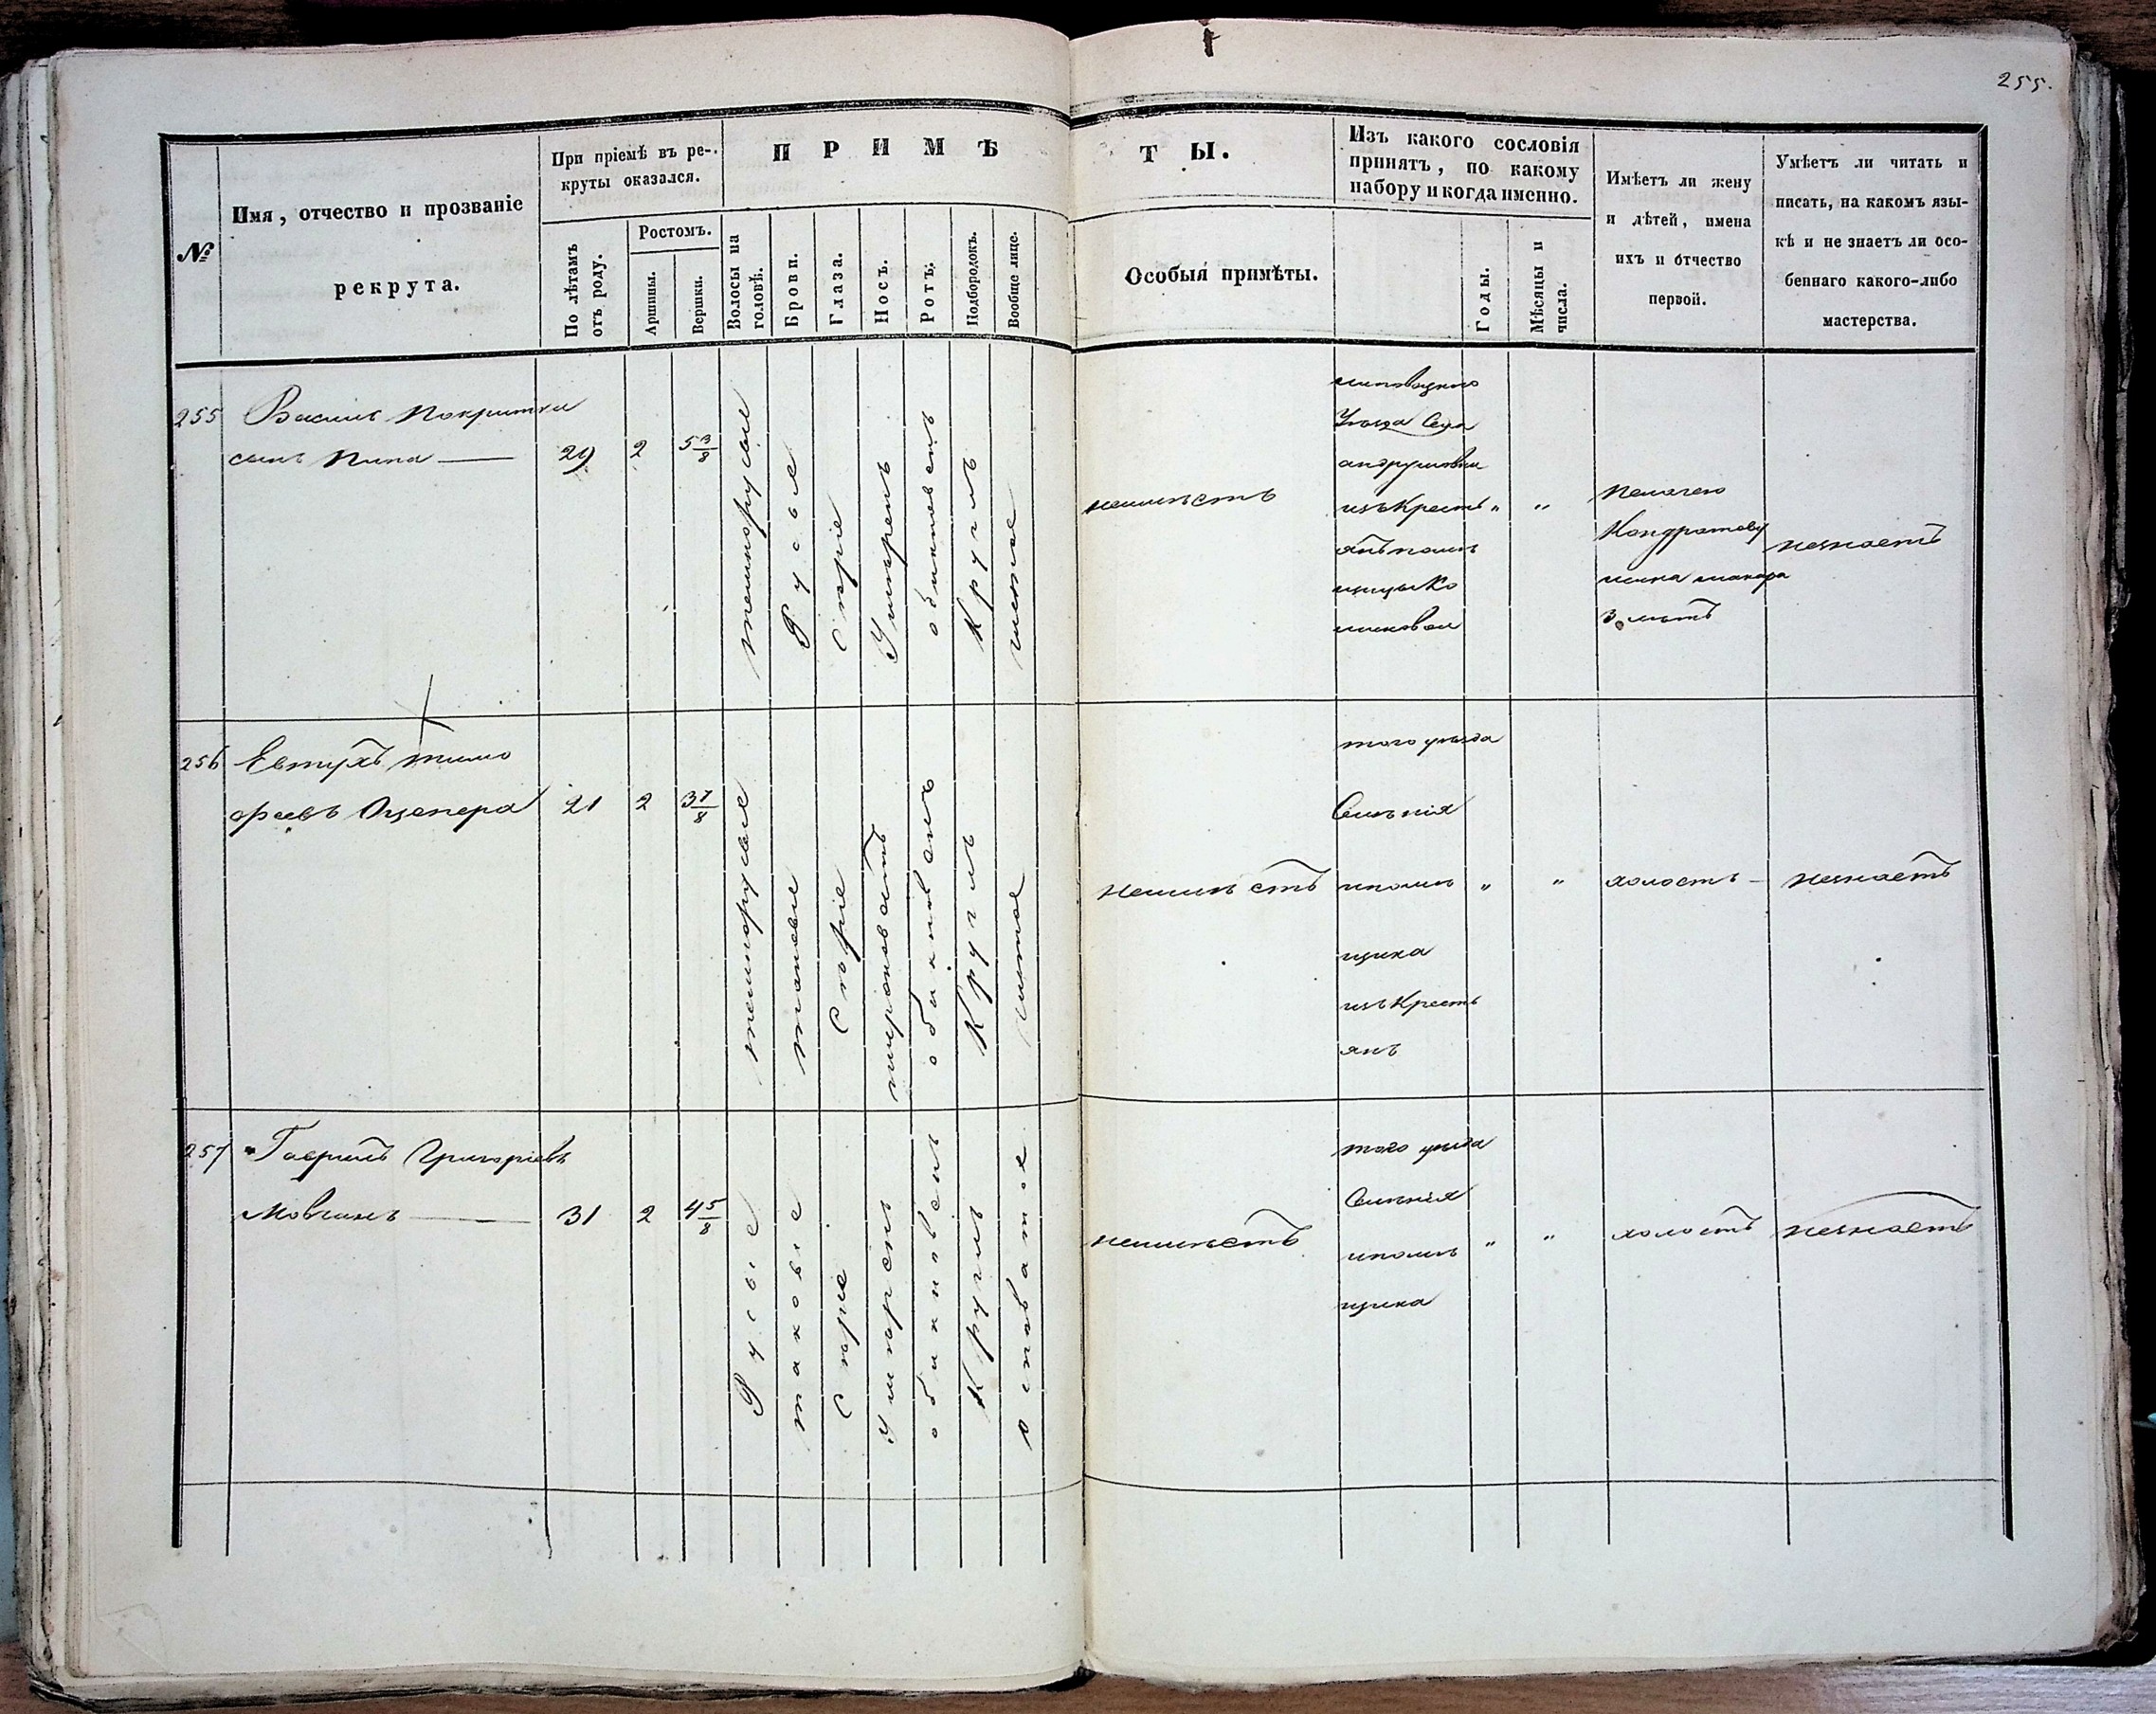 255.
№
Имя, отчество и прозваніе
рекрута.
При пріемѣ въ ре-
круты оказался.
По лѣтамъ
отъ роду.
Ростомъ.
Аршины.
Вершки.
ПРИМѢ
ТЫ.
Волосы на
головѣ.
Брови.
Глаза.
Носъ.
Ротъ.
Подбородокъ.
Вообще лице.
Особыя примѣты.
Изъ какого сословія
принятъ, по какому
набору и когда именно.
Годы.
Мѣсяцы и
числа.
Имѣетъ ли жену
и дѣтей, имена
ихъ и отчество
первой.
Умѣетъ ли читать и
писать, на какомъ язы-
кѣ и не знаетъ ли осо-
беннаго какого-либо
мастерства.
255
Василь
сынъ
29
2
5 3/8
темнорусые
Русые
Сѣріе
Умѣренъ
обикновенъ
Круглъ
чистое
неимѣетъ
Уѣзда Села
андрушовки
изъ Кресть
янъ помѣ
щицы
"
"
Кондратову
сина макара
3 лѣтъ
незнаетъ
256
Евтухъ тимо
феевъ Оцепера
21
2
3 7/8
темнорусые
таковые
Сѣріе
широковатъ
обикновенъ
Круглъ
чистое
неимѣетъ
того уѣзда
Селѣнія
ипомѣ
щика
изъ Кресть
янъ
"
"
холостъ
незнаетъ
257
Гаврилъ Григоріевъ
Мовчанъ
31
2
4 5/8
Русые
таковые
Сѣріе
Умѣренъ
обикновенъ
Круглъ
неимѣетъ
того уѣзда
Селѣнія
ипомѣ
щика
"
"
холостъ
незнаетъ